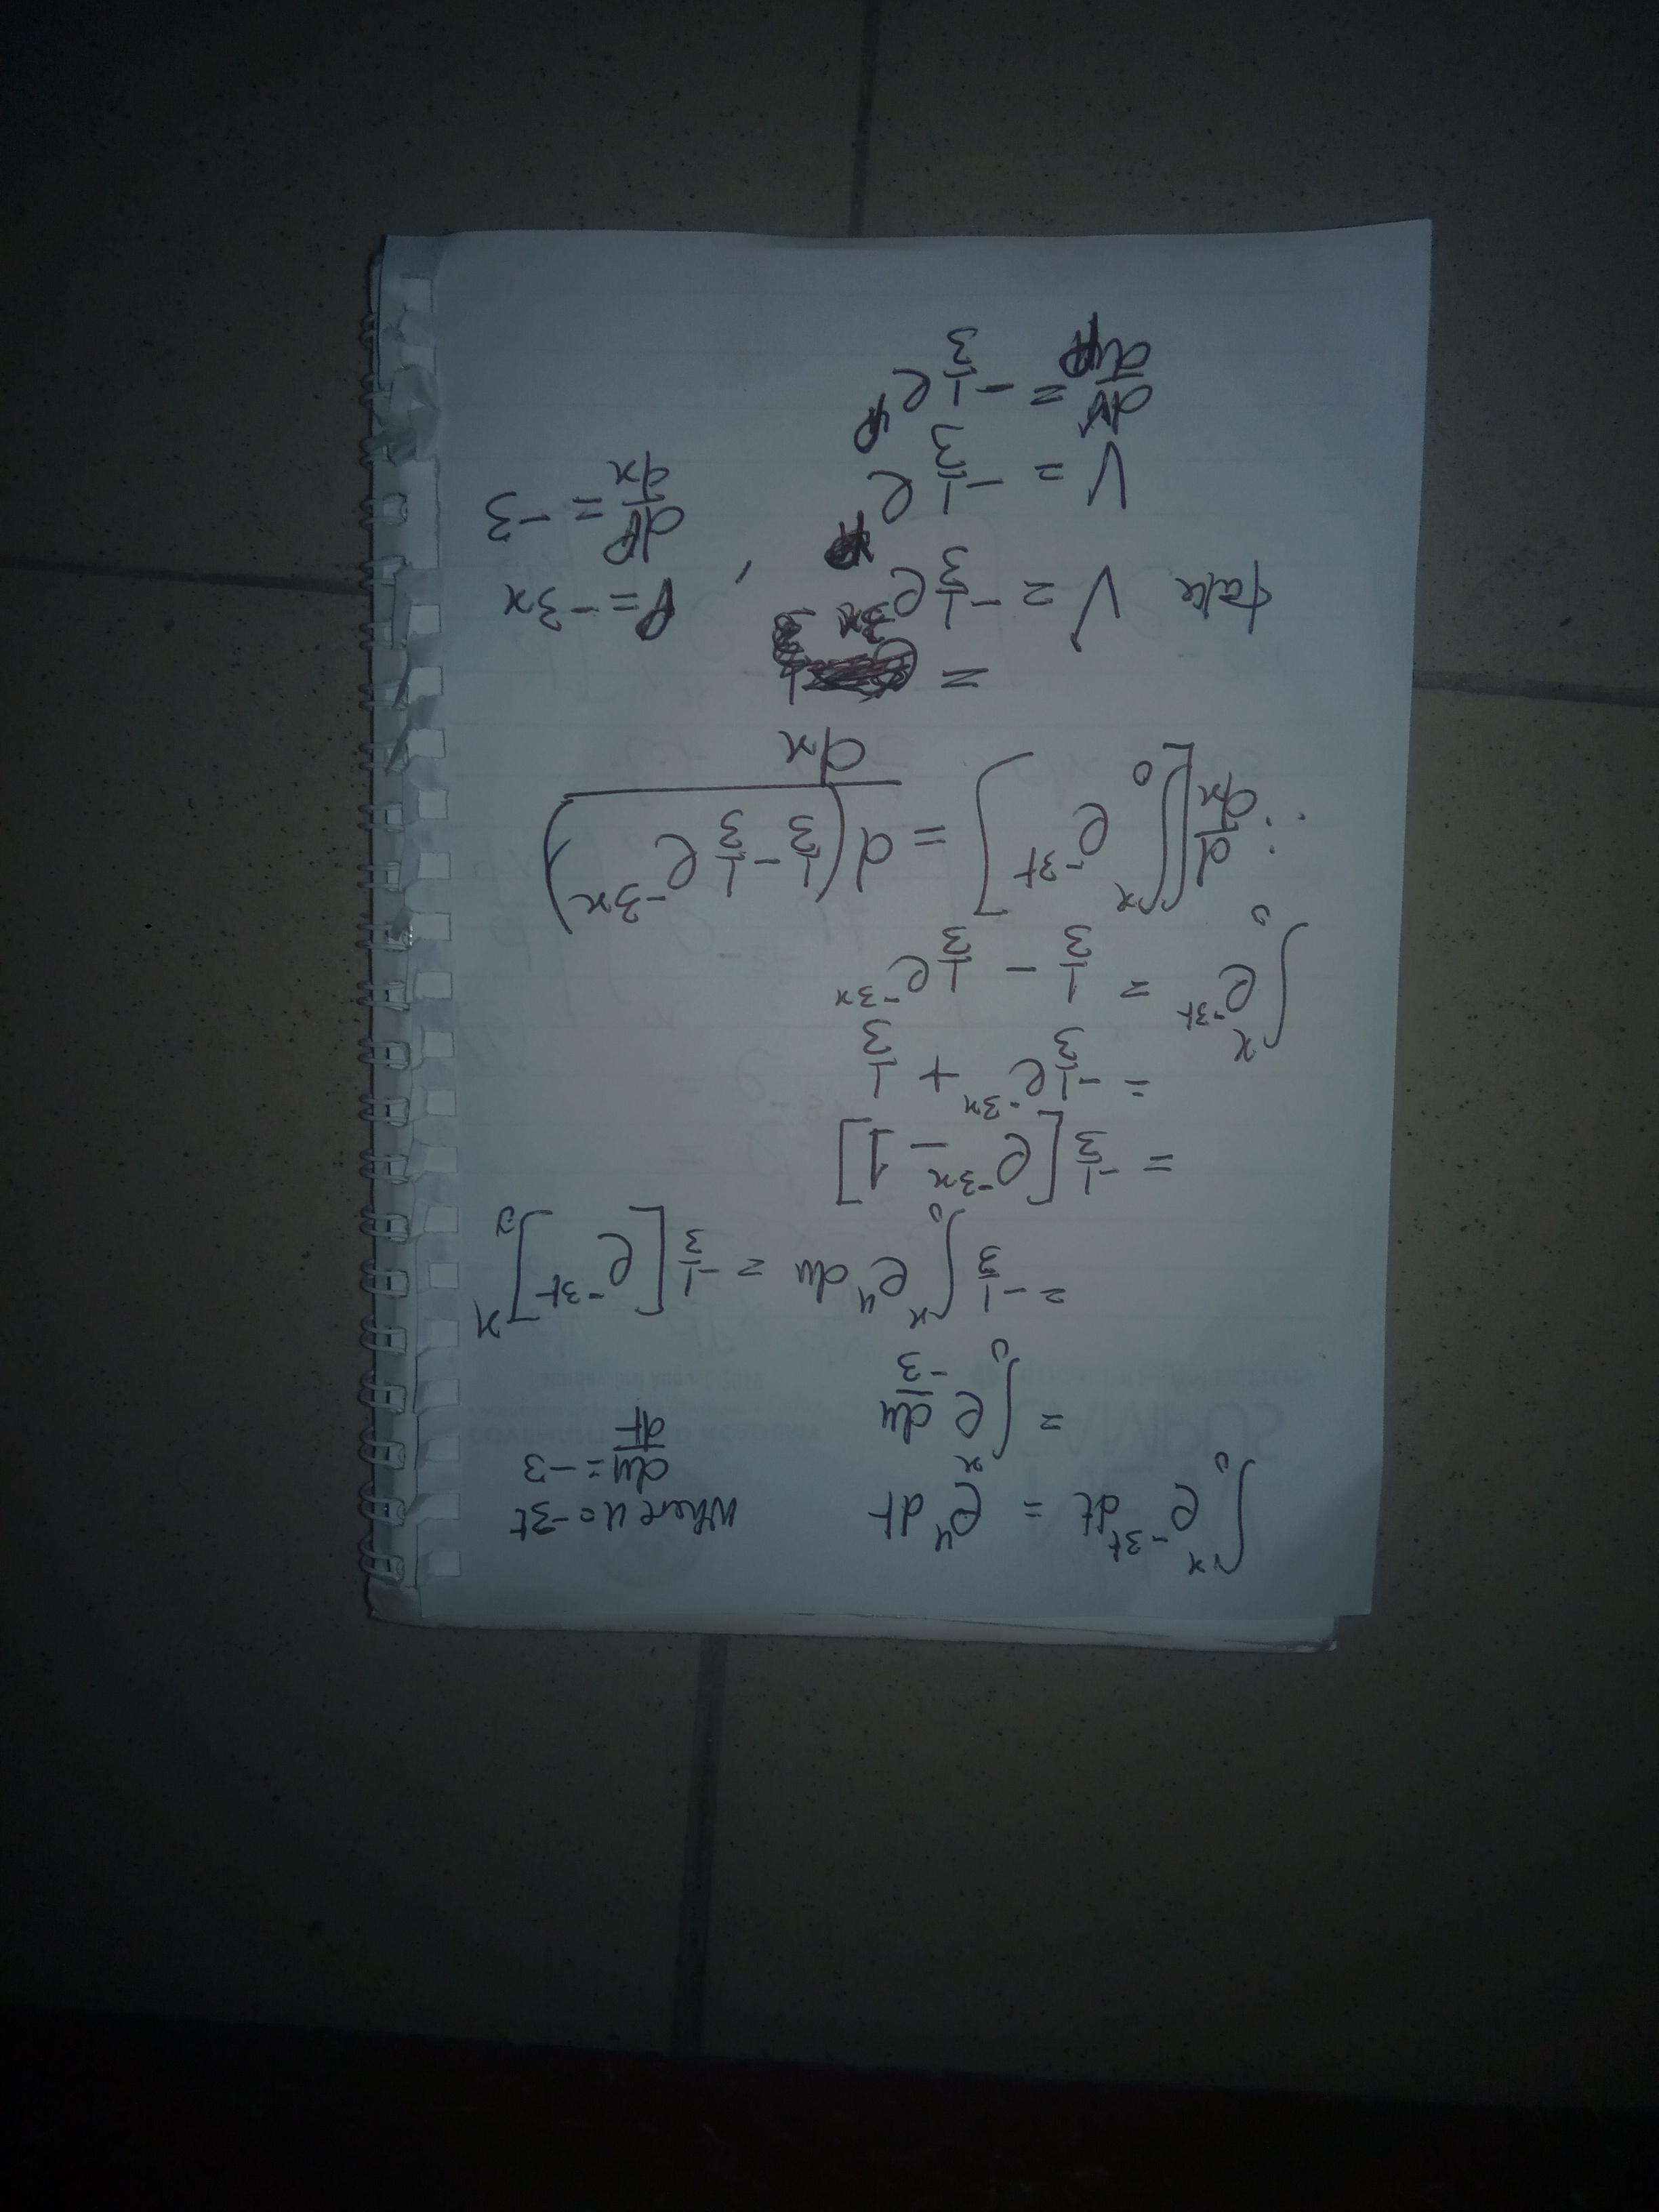 ∫₀ˣ e⁻³ᵗ dt = eᵘ dt where u = -3t
= ∫₀ˣ e du/-3 du/dt = -3
= -1/3 ∫₀ˣ eᵘ du = -1/3 [e⁻³ᵗ]₀ˣ
= -1/3 [e⁻³ˣ - 1]
= -1/3 e⁻³ˣ + 1/3
∫₀ˣ e⁻³ᵗ = 1/3 - 1/3 e⁻³ˣ
∴ d/dx [∫₀ˣ e⁻³ᵗ] = d(1/3 - 1/3 e⁻³ˣ)/dx
=
take V = -1/3 e⁻³ˣ , P = -3x
V = -1/3 eᵖ dP/dx = -3
dV/dp = -1/3 eᵖ